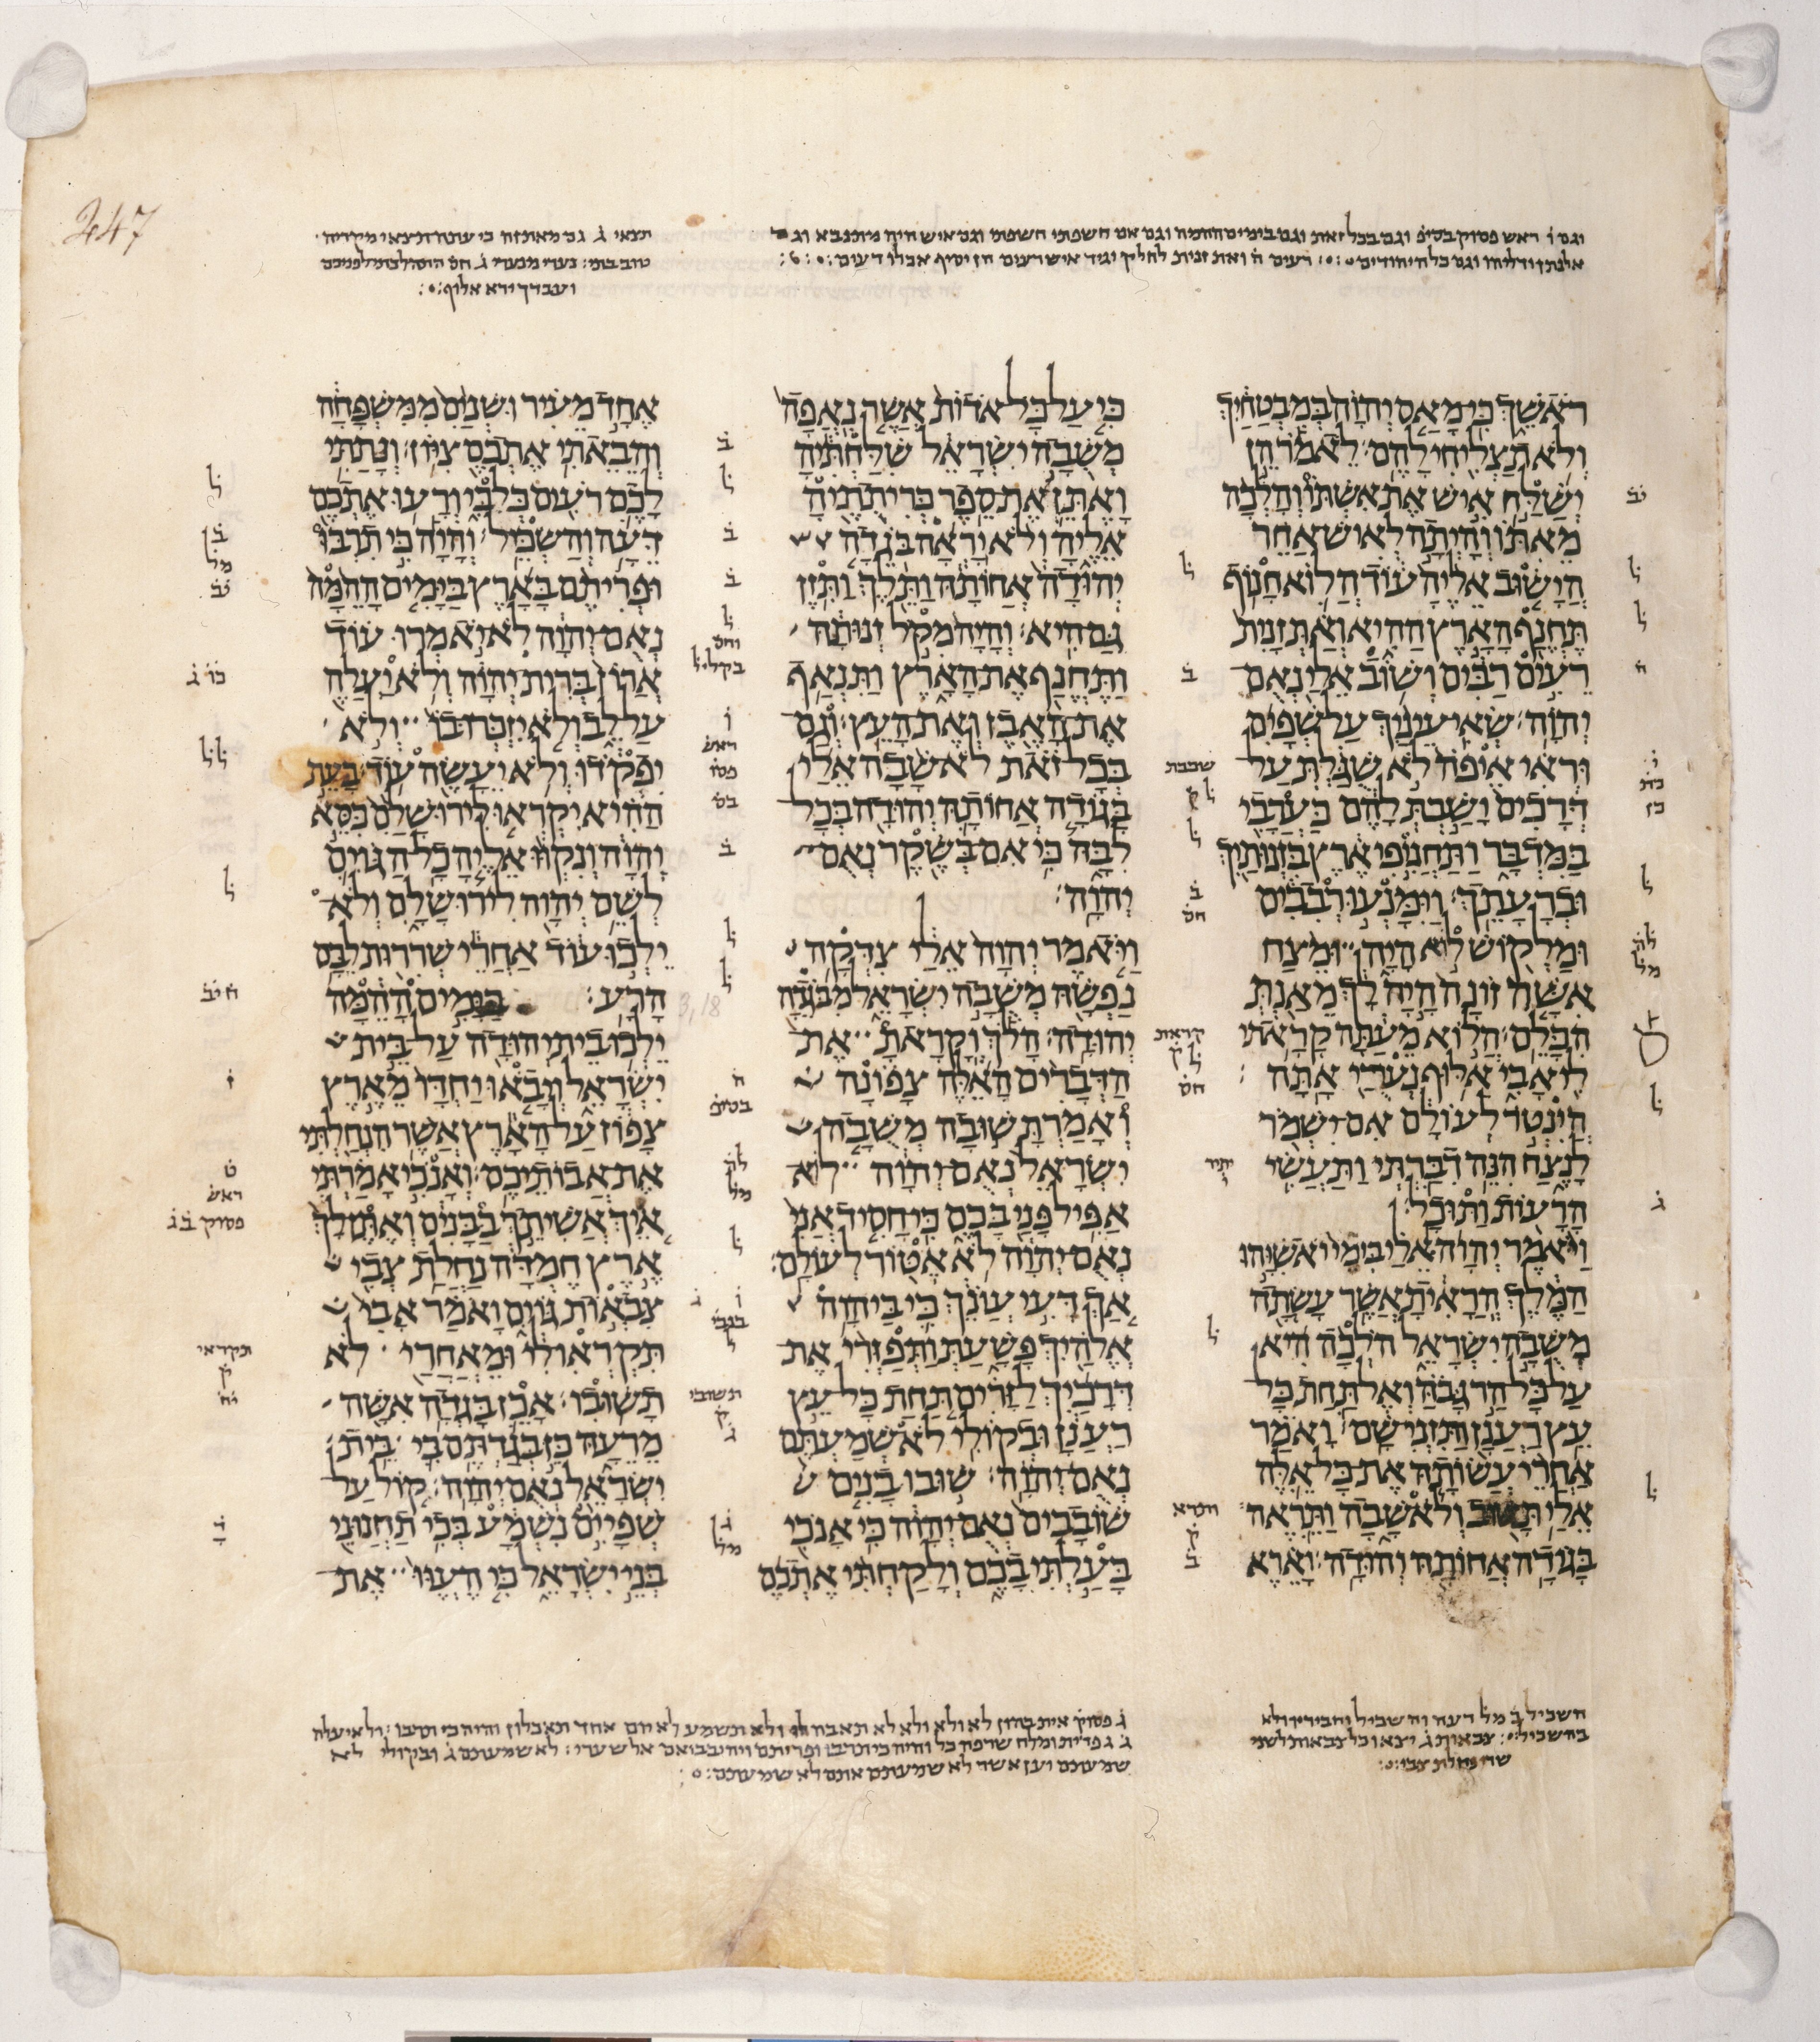 וגם ו֗ ראש פסוק בסיפ֗ וגם בכל זאת וגם בימים ההמה וגם אם חשפתי חשפתי וגם איש היה מתנבא וגם
אלנתן ודליהו וגם כל היהודים רעים ה֗ ואת זנית לחלק יגיד איש רעים הן יסיף אכלו רעים
תצאי ג֗ גם מאת זה כי עתה תצאי מקריה
ועברך ירא אלוף
ראשך כי מאס יהוה במבטחיך
ולא תצליחי להם׃ לאמר הן
ישלח איש את אשתו והלכה
מאתו והיתה לאיש אחר
הישוב אליה עוד הלוא חנוף
תחנף הארץ ההיא ואת זנית
רעים רבים ושוב אלי נאם
יהוה׃ שאי עיניך על שפים
וראי איפה לא שגלת על
דרכים ישבת להם כערבי
במדבר ותחניפי ארץ בזנותיך
וברעתך׃ וימנעו רבבים
ומלקוש לוא היה ומצח
אשה זונה היה לך מאנת
הכלם׃ הלוא מעתה קראתי
לי אבי אלוף נערי אתה׃
הינטר לעולם אם ישמר
לנצח הנה דברתי ותעשי
הרעות ותוכל׃
ויאמר יהוה אלי בימי יאשיהו
המלך הראית אשר עשתה
משבה ישראל הלכה היא
על כל הר גבה ואל תחת כל
עץ רענן ותזני שם׃ ואמר
אחרי עשותה את כל אלה
אלי תשוב ולא שבה ותראה
בגודה אחותה יהודה׃ וארא
כי על כל אדות אשר נאפה
משבה ישראל שלחתיה
ואתן את ספר כריתתיה
אליה ולא יראה בגדה
יהודה אחותה ותלך ותזן
גם היא׃ והיה מקל זנותה
ותחנף את הארץ ותנאף
את האבן ואת העץ׃ וגם
בכל זאת לא שבה אלי
בגודה אחותה יהודה בכל
לבה כי אם בשקר נאם
יהוה׃
ויאמר יהוה אלי צדקה
נפשה משבה ישראל מבגדה
יהודה׃ הלך וקראת את
הדברים האלה צפונה
ואמרת שובה משבה
ישראל נאם יהוה לוא
אפיל פני בכם כי חסיד אני
נאם יהוה לא אטור לעולם׃
אך דעי עונך כי ביהוה
אלהיך פשעת ותפזרי את
דרכיך לזרים תחת כל עץ
רענן ובקולי לא שמעתם
נאם יהוה׃ שובו בנים
שובבים נאם יהוה כי אנכי
בעלתי בכם ולקחתי אתכם
אחד מעיר ושנים ממשפחה
והבאתי אתכם ציון׃ ונתתי
לכם רעים כלבי ורעו אתכם
דעה והשכיל׃ והיה כי תרבו
ופריתם בארץ בימים ההמה
נאם יהוה לא יאמרו עוד
ארון ברית יהוה ולא יעלה
על לב ולא יזכרו בו ולא
יפקדו ולא יעשה עוד׃ בעת
ההיא יקראו לירושלם כסא
יהוה ונקוו אליה כל הגוים
לשם יהוה לירושלם ולא
ילכו עוד אחרי שררות לבם
הרע׃ בימים ההמה
ילכו בית יהודה על בית
ישראל ויבאו יחדו מארץ
צפון על הארץ אשר הנחלתי
את אבותיכם׃ ואנכי אמרתי
איך אשיתך בבנים ואתן לך
ארץ חמדה נחלת צבי
צבאות גוים ואמר אבי
תקראו לי ומאחרי לא
תשובו׃ אכן בגדה אשה
מרעה כן בגדתם בי בית
ישראל נאם יהוה׃ קול על
שפיים נשמע בכי תחנוני
בני ישראל כי העוו את
ג֗ פסוק אית בהון לא ולא ולא לא תאבה לו ולא תשמע לא יום אחד תאכלון והיה כי תרבו ולא יעלה
שמעתם יען אשר לא שמעתם אתם לא שמעתם
השכיל ב֗ מל דעה והשכיל
247
3,18